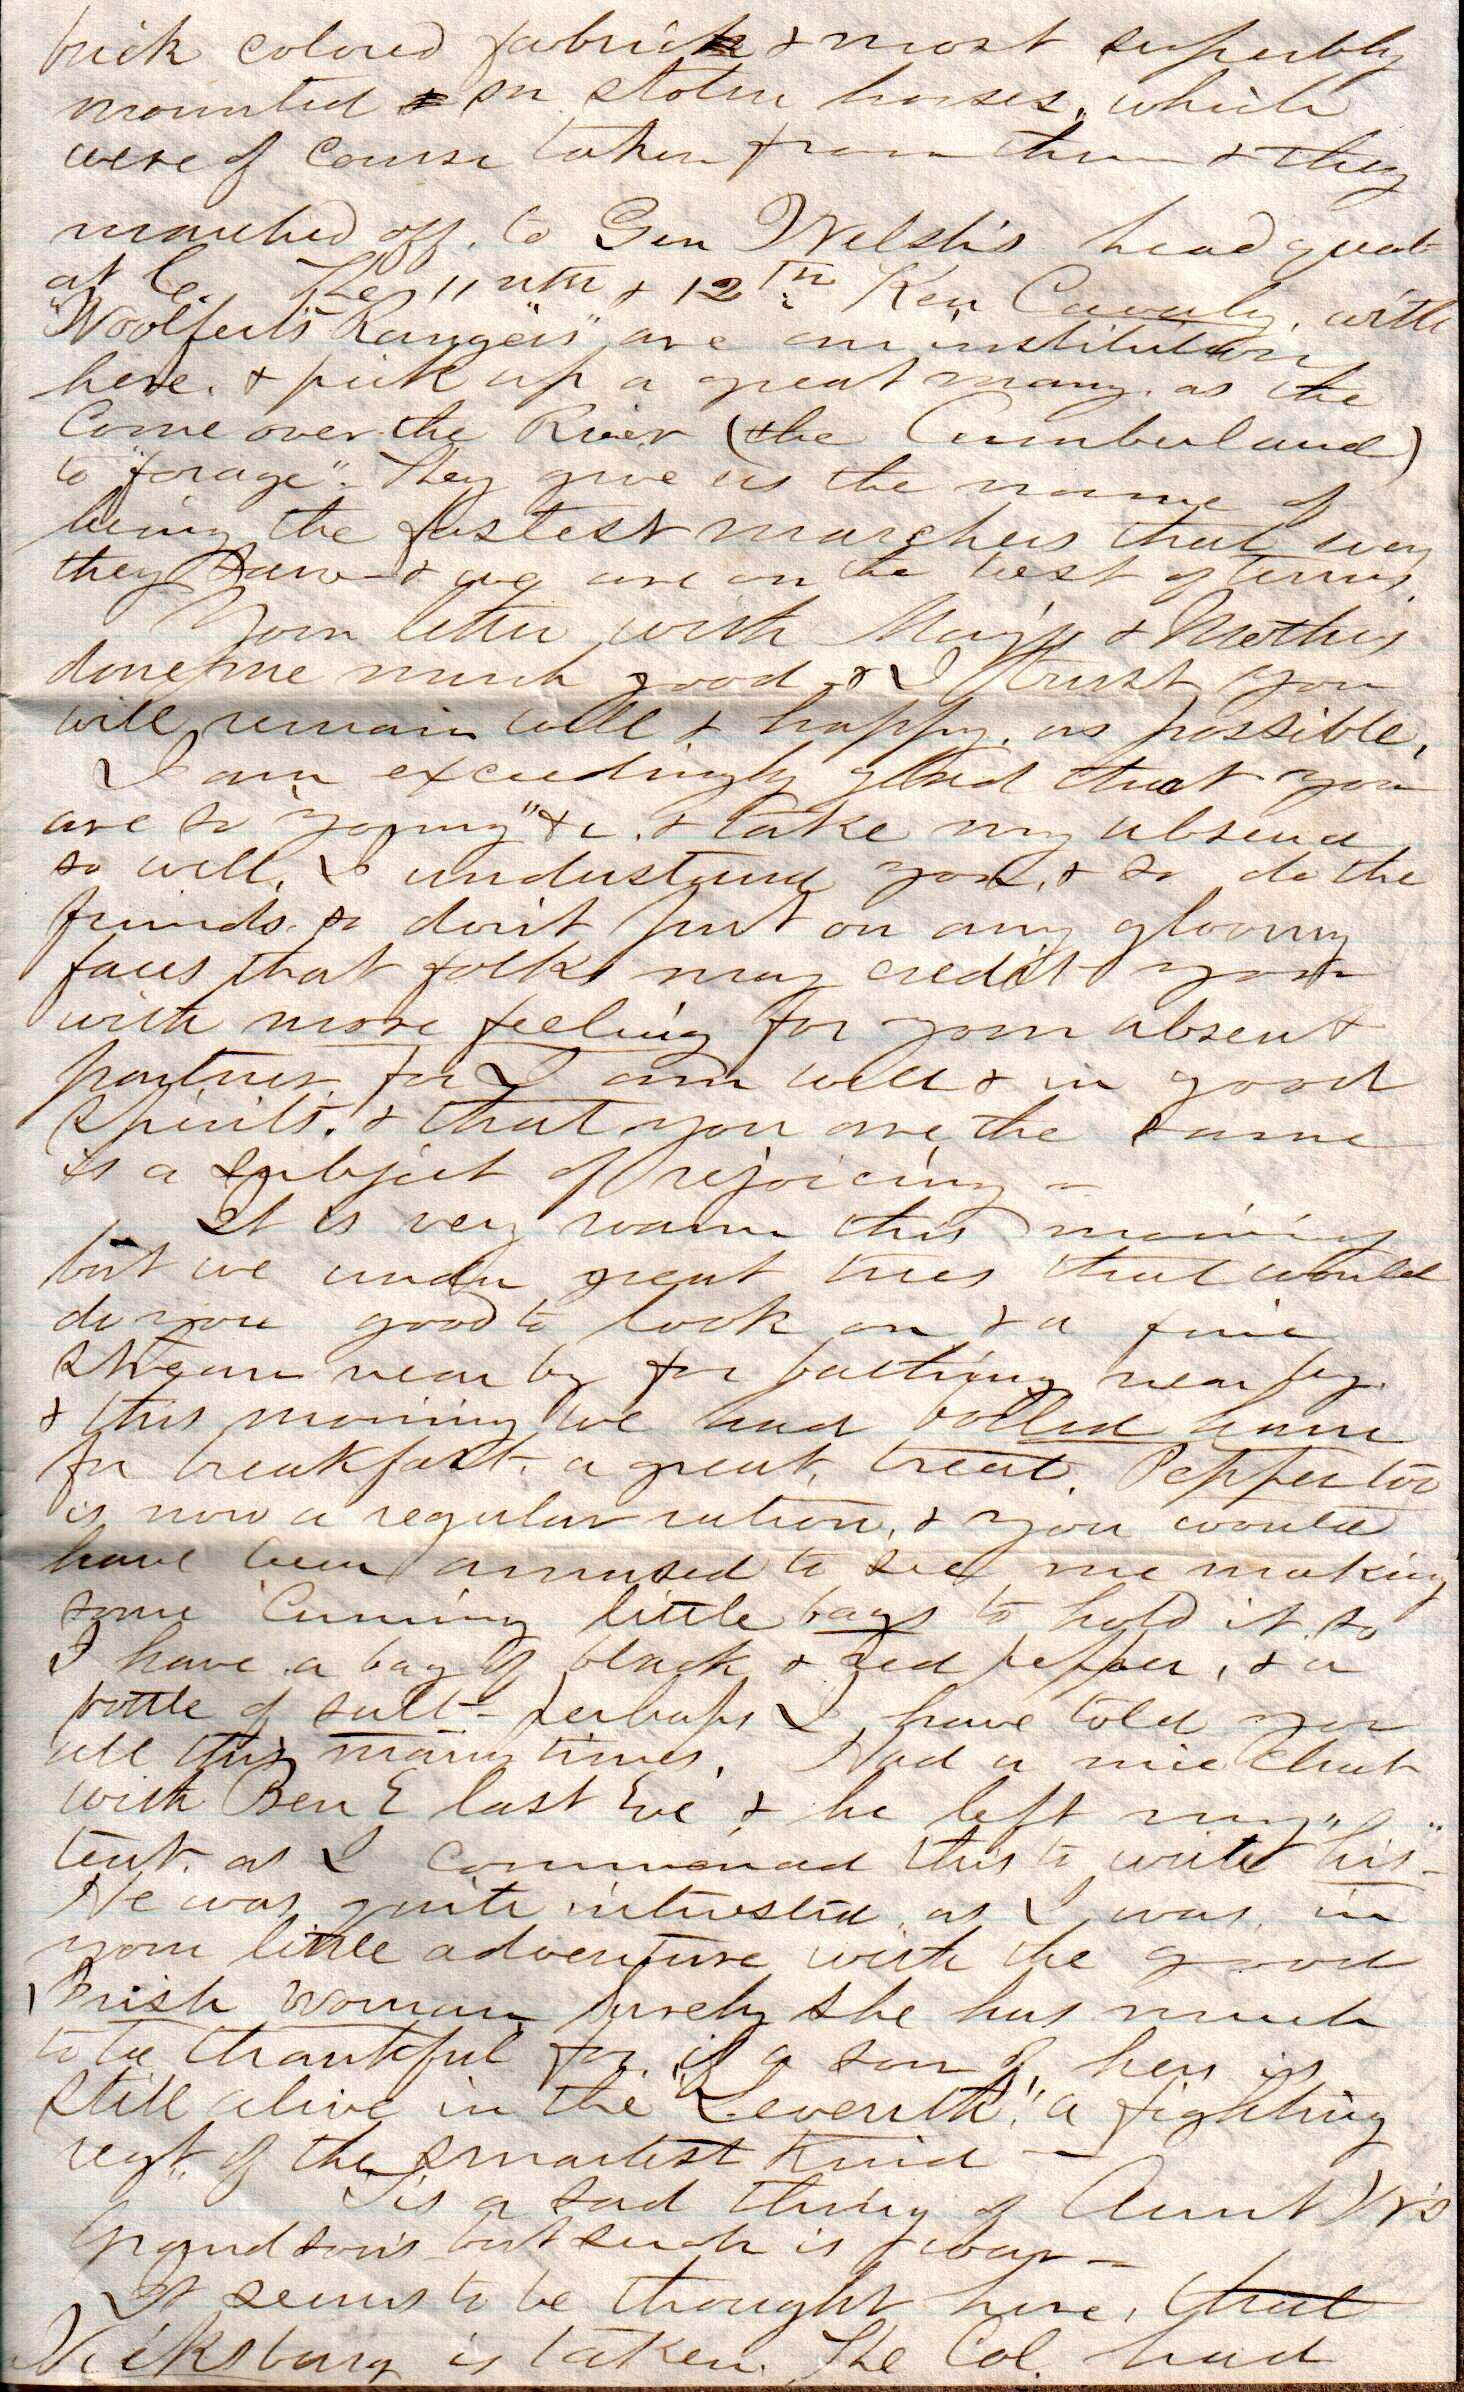 brick colored fabrick & most superbly
mounted on stolen horses, which
were of course taken from them & they
marched off, to Gen Welsh's head quat
at C. The 11nth & 12th Ken Cavaly. with
"Woolfert's Rangers" are an institution
here. & pick up a great many. as the
Come over the River (the Cumberland)
to "forage". They give us the name of
being the fastest marchers that ever
they saw & we are on the best of terms.
Your letter with Mary's & Mothers
done me much good & I trust you
will remain well & happy. as possible.
I am exceedingly glad that you
are so "young" &c. & take my absence
so well, I understand you, & so do the
friends. so don't put on any gloomy
faces that folks may credit you
with more feeling for your absent
partner, for I am well & in good
spirits. & that you are the same
is a subject of rejoicing -
It is very warm this morning
but we under great trees that would
do you good to look on & a fine
stream near by for bathing near by.
& this morning we had boiled ham
for breakfast. a great, treat. Pepper too
is now a regular ration, & you would
have been amused to see me making
some cunning little bags to hold it. so
I have a bag of black & red pepper, & a
bottle of salt - perhaps I have told you
all this many times. Had a nice Chat
with Ben E last Eve, & he left my
tent. as I commenced this to write "his" -
He was quite interested, as I was, in
your little adventure with the good
Irish woman, surely she has much
to be thankful for, if a son of hers is
still alive in the "Seventh", a fighting
regt. of the smartest kind -
Tis a sad thing of Aunt
Grandsons - but such is war -
It seems to be thought here, that
Vicksburg is taken. The Col. had